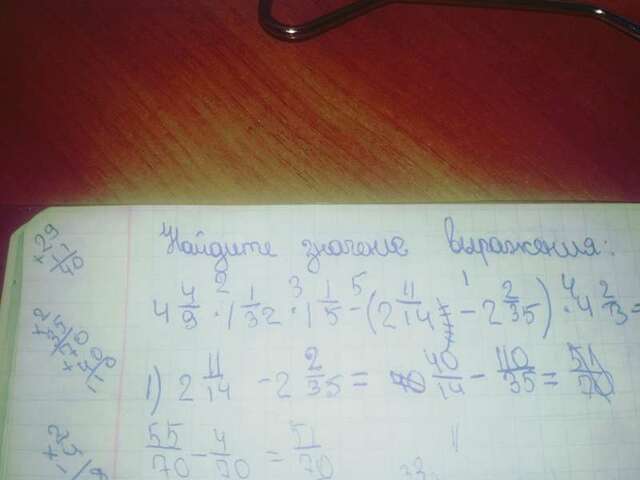 Найдите значение выражения:
4 4/9 · 1 1/32 · 1 1/5 - (2 11/14 - 2 2/35) · 4 2/3 =
1) 2 11/14 - 2 2/35 = 40/14 - 110/35 = 51/70
55/70 - 4/70 = 51/70